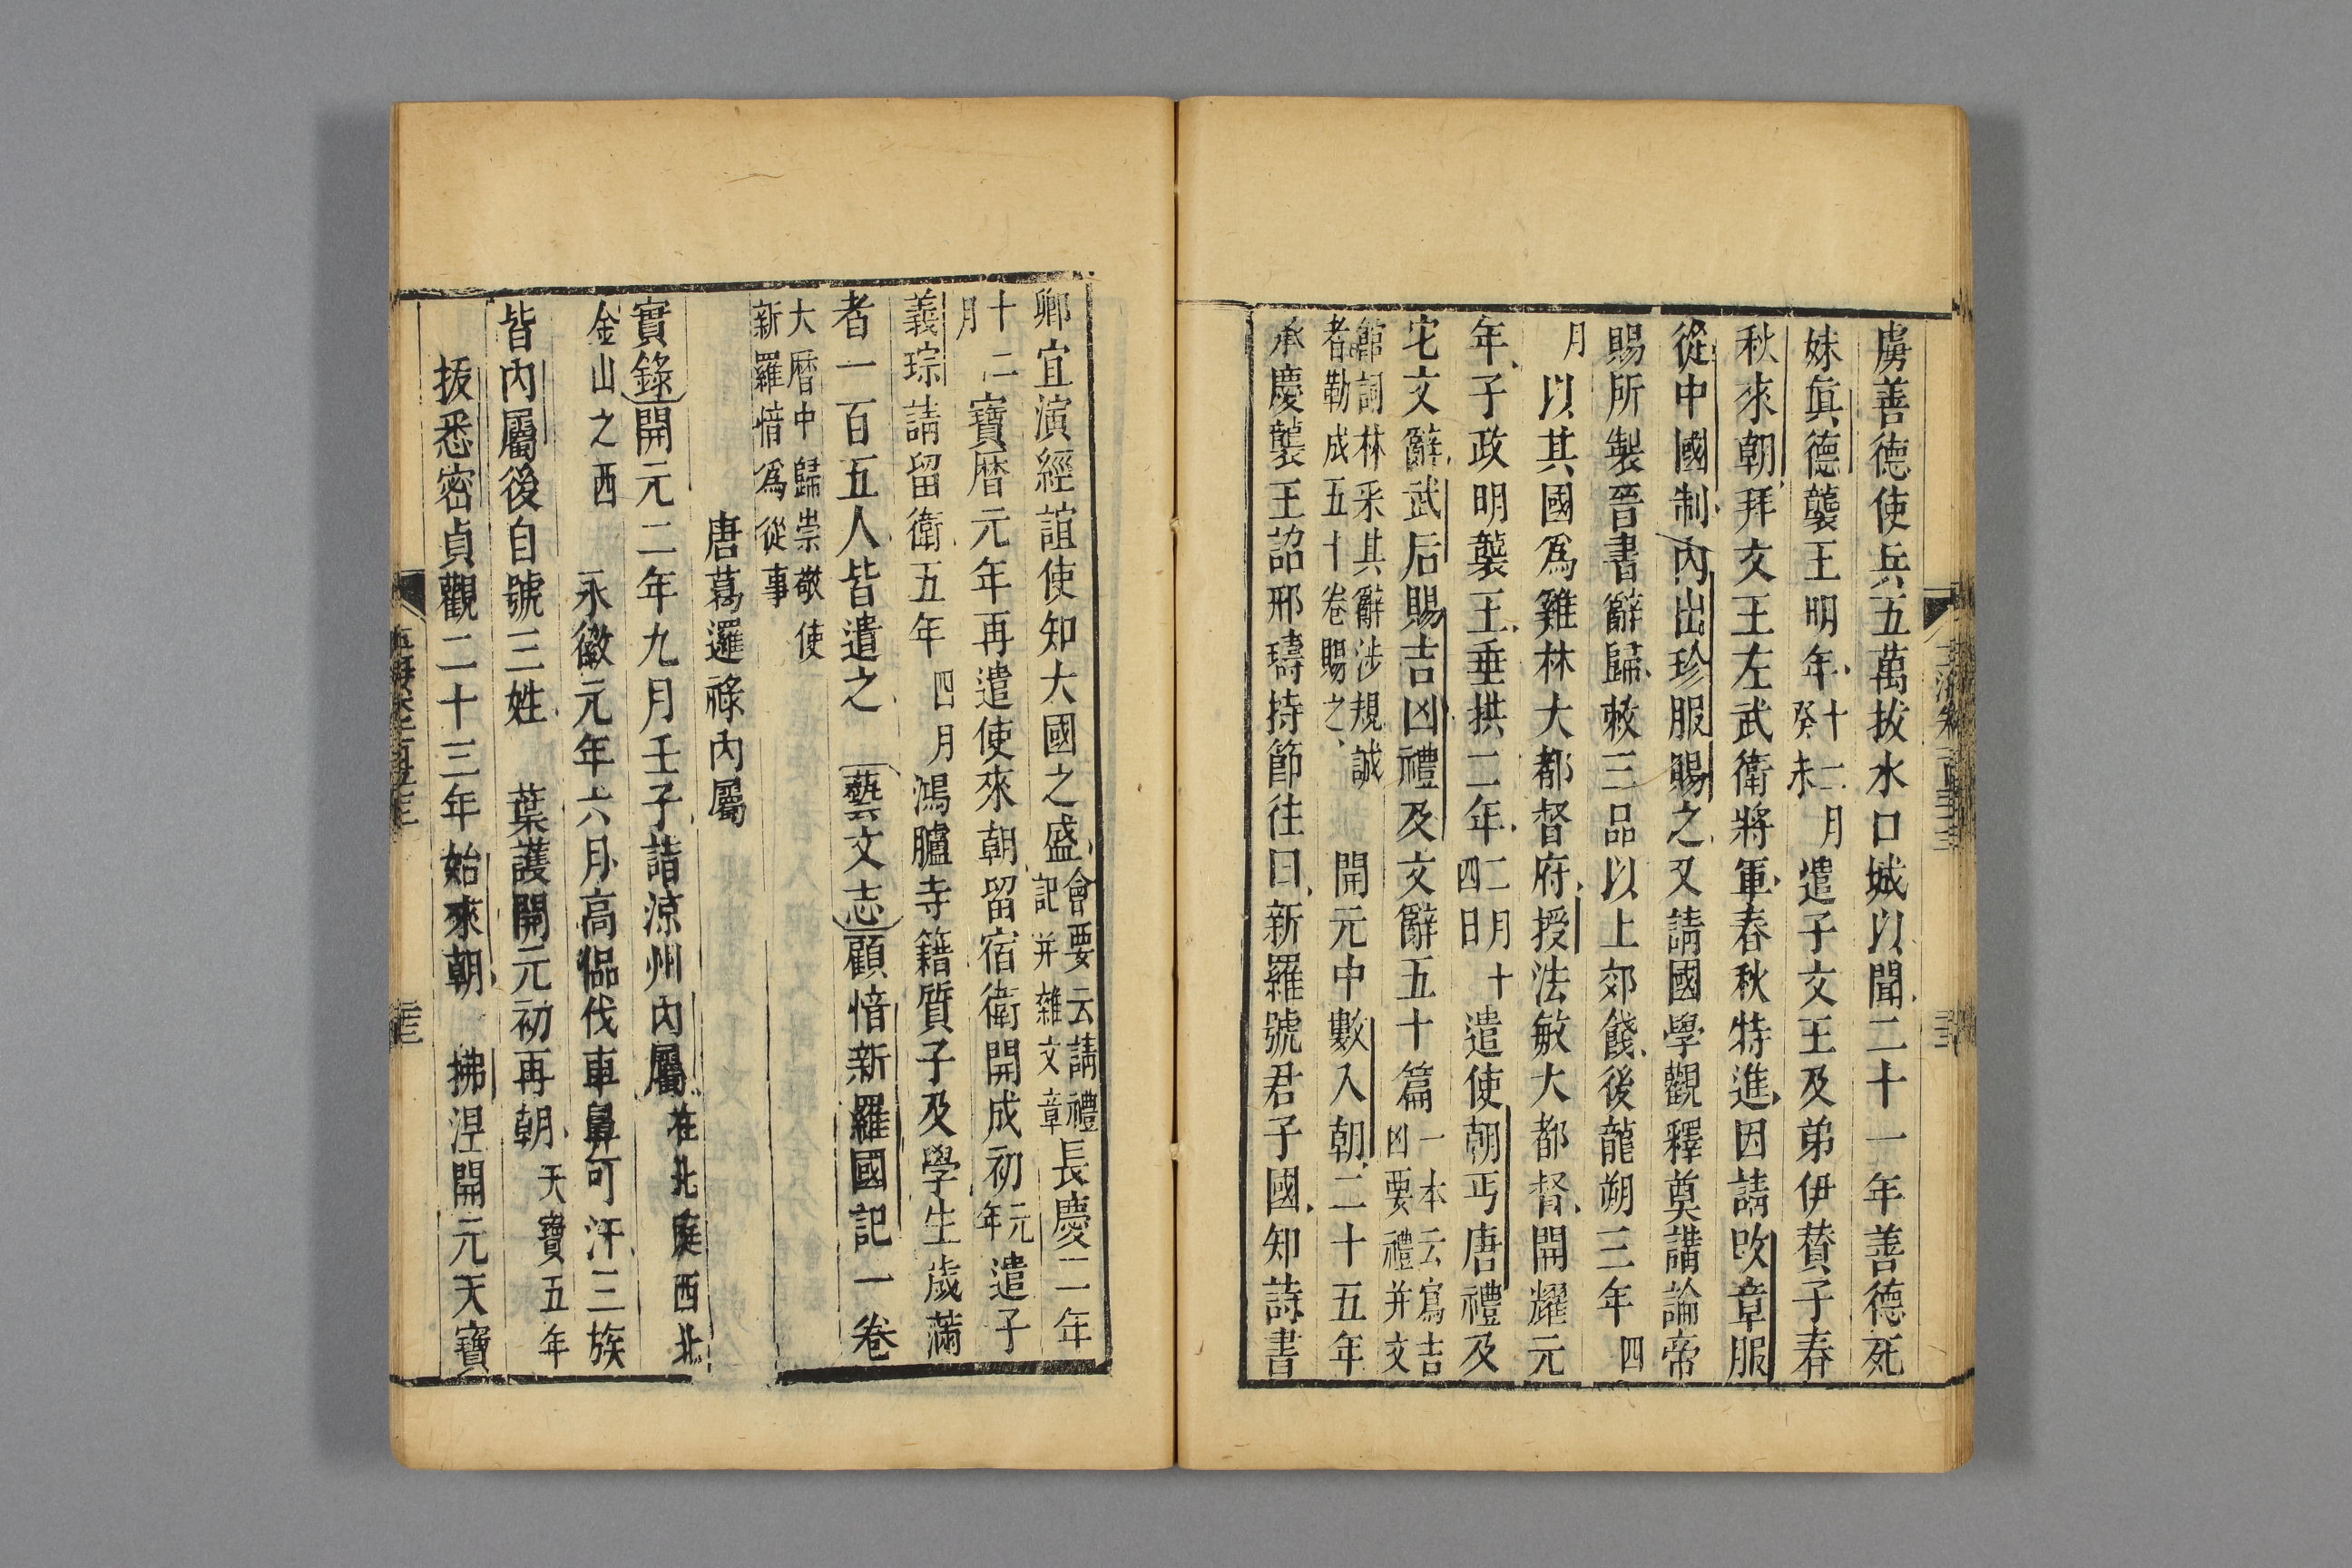 虜善德使兵五萬拔水口城以聞二十一年善德死
妹眞德襲王明年十二月癸未遣子文王及弟伊賛子春
秋來朝拜文王左武衛將軍春秋特進因請改章服
從中國制內出珍服賜之又請國學觀釋奠講論帝
賜所製晉書辭歸敕三品以上郊餞後龍朔三年四
月以其國爲雞林大都督府授法敏大都督開耀元
年子政明襲王垂拱二年二月十四日遣使朝丐唐禮及
它文辭武后賜吉凶禮及文辭五十篇一本云寫吉凶要禮并文
館詞林采其辭涉規誡者勒成五十卷賜之開元中數入朝二十五年
承慶襲王詔邢璹持節往曰新羅號君子國知詩書
卿宜演經誼使知大國之盛會要云請禮記并雜文章長慶二年
十二月寶曆元年再遣使來朝留宿衛開成初元年遣子
義琮請留衛五年四月鴻臚寺籍質子及學生歲滿
者一百五人皆遣之藝文志顧愔新羅國記一卷
大曆中歸崇敬使新羅愔爲從事
唐葛邏祿內屬
實錄開元二年九月壬子詣涼州內屬在北庭西北
金山之西永徽元年六月高偘伐車鼻可汗三族
皆內屬後自號三姓葉護開元初再朝天寶五年
拔悉密貞觀二十三年始來朝拂涅開元天寶